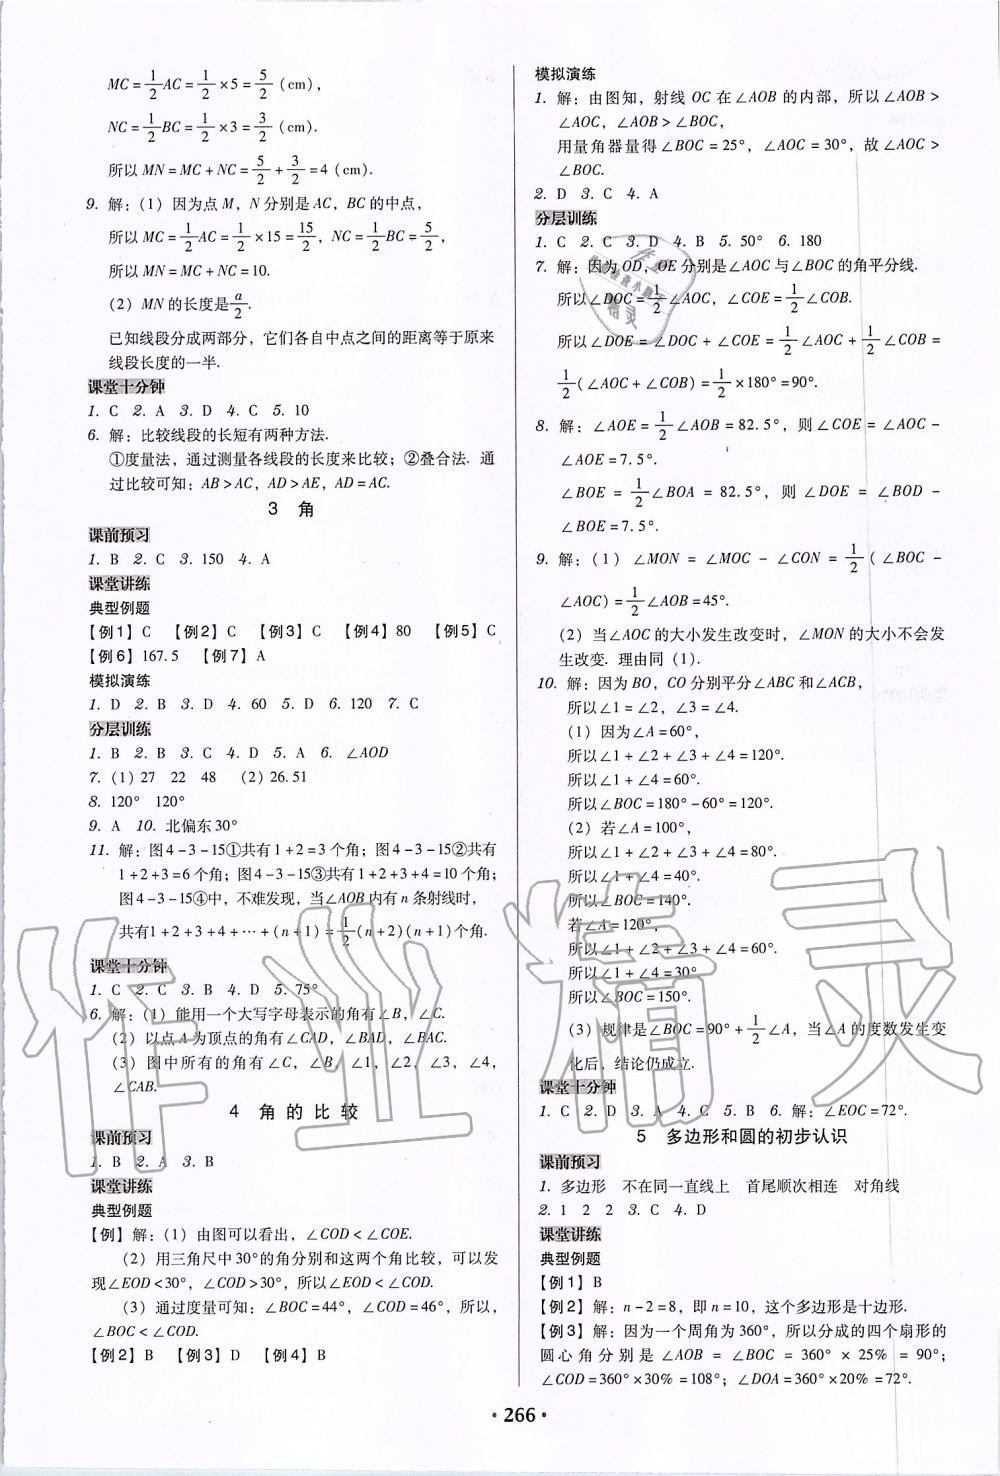 MC=1/2AC=1/2×5=5/2(cm),
NC=1/2BC=1/2×3=3/2(cm).
所以MN=MC+NC=5/2+3/2=4(cm).
9. 解:(1)因为点M,N分别是AC,BC的中点,
所以MC=1/2AC=1/2×15=15/2,NC=1/2BC=5/2,
所以MN=MC+NC=10.
(2)MN的长度是a/2.
已知线段分成两部分,它们各自中点之间的距离等于原来
线段长度的一半.
课堂十分钟
1. C 2. A 3. D 4. C 5. 10
6. 解:比较线段的长短有两种方法.
①度量法,通过测量各线段的长度来比较;②叠合法. 通
过比较可知:AB>AC,AD>AE,AD=AC.
3 角
课前预习
1. B 2. C 3. 150 4. A
课堂讲练
典型例题
【例1】C 【例2】C 【例3】C 【例4】80 【例5】C
【例6】167.5 【例7】A
模拟演练
1. D 2. B 3. D 4. 60 5. D 6. 120 7. C
分层训练
1. B 2. B 3. C 4. D 5. A 6. ∠AOD
7. (1)27 22 48 (2)26.51
8. 120° 120°
9. A 10. 北偏东30°
11. 解:图4-3-15①共有1+2=3个角;图4-3-15②共有
1+2+3=6个角;图4-3-15③共有1+2+3+4=10个角;
图4-3-15④中,不难发现,当∠AOB内有n条射线时,
共有1+2+3+4+…+(n+1)=1/2(n+2)(n+1)个角.
课堂十分钟
1. C 2. C 3. B 4. D 5. 75°
6. 解:(1)能用一个大写字母表示的角有∠B,∠C.
(2)以点A为顶点的角有∠CAD,∠BAD,∠BAC.
(3)图中所有的角有∠C,∠B,∠1,∠2,∠3,∠4,
∠CAB.
4 角的比较
课前预习
1. B 2. A 3. B
课堂讲练
典型例题
【例】解:(1)由图可以看出,∠COD<∠COE.
(2)用三角尺中30°的角分别和这两个角比较,可以发
现∠EOD<30°,∠COD>30°,所以∠EOD<∠COD.
(3)通过度量可知:∠BOC=44°,∠COD=46°,所以,
∠BOC<∠COD.
【例2】B 【例3】D 【例4】B
模拟演练
1. 解:由图知,射线OC在∠AOB的内部,所以∠AOB>
∠AOC,∠AOB>∠BOC,
用量角器量得∠BOC=25°,∠AOC=30°,故∠AOC>
∠BOC.
2. D 3. C 4. A
分层训练
1. C 2. C 3. D 4. B 5. 50° 6. 180
7. 解:因为OD,OE分别是∠AOC与∠BOC的角平分线.
所以∠DOC=1/2∠AOC,∠COE=1/2∠COB.
所以∠DOE=∠DOC+∠COE=1/2∠AOC+1/2∠COB=
1/2(∠AOC+∠COB)=1/2×180°=90°.
8. 解:∠AOE=1/2∠AOB=82.5°,则∠COE=∠AOC-
∠AOE=7.5°.
∠BOE=1/2∠BOA=82.5°,则∠DOE=∠BOD-
∠BOE=7.5°.
9. 解:(1)∠MON=∠MOC-∠CON=1/2(∠BOC-
∠AOC)=1/2∠AOB=45°.
(2)当∠AOC的大小发生改变时,∠MON的大小不会发
生改变. 理由同(1).
10. 解:因为BO,CO分别平分∠ABC和∠ACB,
所以∠1=∠2,∠3=∠4.
(1)因为∠A=60°,
所以∠1+∠2+∠3+∠4=120°.
所以∠1+∠4=60°.
所以∠BOC=180°-60°=120°.
(2)若∠A=100°,
所以∠1+∠2+∠3+∠4=80°.
所以∠1+∠4=40°.
所以∠BOC=140°.
若∠A=120°,
所以∠1+∠2+∠3+∠4=60°.
所以∠1+∠4=30°.
所以∠BOC=150°.
(3)规律是∠BOC=90°+1/2∠A,当∠A的度数发生变
化后,结论仍成立.
课堂十分钟
1. C 2. D 3. A 4. C 5. B 6. 解:∠EOC=72°.
5 多边形和圆的初步认识
课前预习
1. 多边形 不在同一直线上 首尾顺次相连 对角线
2. 1 2 2 3. C 4. D
课堂讲练
典型例题
【例1】B
【例2】解:n-2=8,即n=10,这个多边形是十边形.
【例3】解:因为一个周角为360°,所以分成的四个扇形的
圆心角分别是∠AOB=∠BOC=360°×25%=90°;
∠COD=360°×30%=108°;∠DOA=360°×20%=72°.
·266·
作业精灵